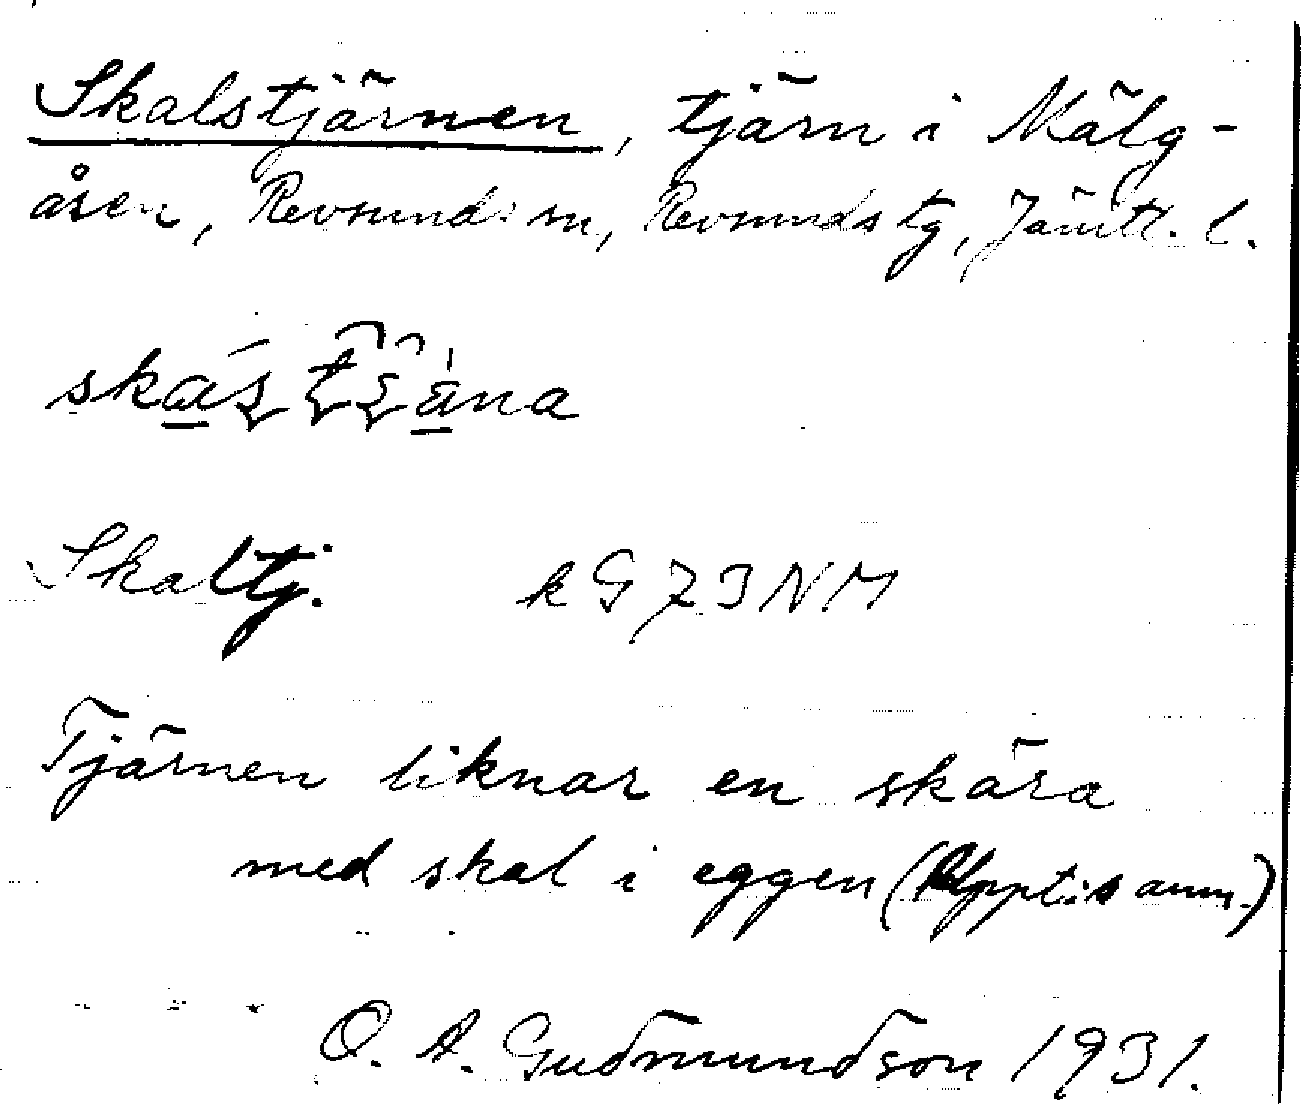 Skalstjärnen, tjärn i Mälg-
åsen, Revsunds sn, Revsunds tg, Jämtl. l.
Skaltj. k G 73 NM
Tjärnen liknar en skära
med skal i eggen (Uppt:s anm.)
O. A. Gudmundson 1931.